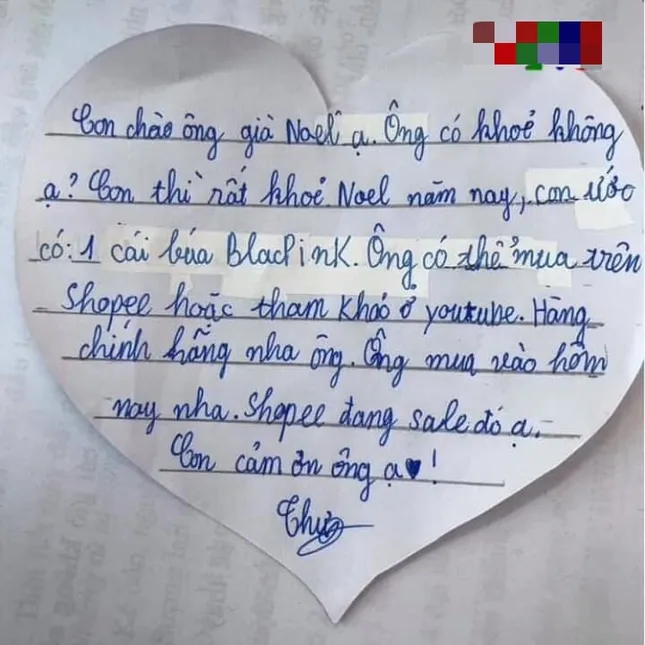 Con chào ông già Noel ạ. Ông có khoẻ không
ạ? Con thì rất khoẻ Noel năm nay, con ước
có: 1 cái búa BlacPink. Ông có thể mua trên
Shopee hoặc tham khảo ở youtube. Hàng
chính hãng nha ông. Ông mua vào hôm
nay nha. Shopee đang sale đó ạ.
Con cảm ơn ông ạ♥!